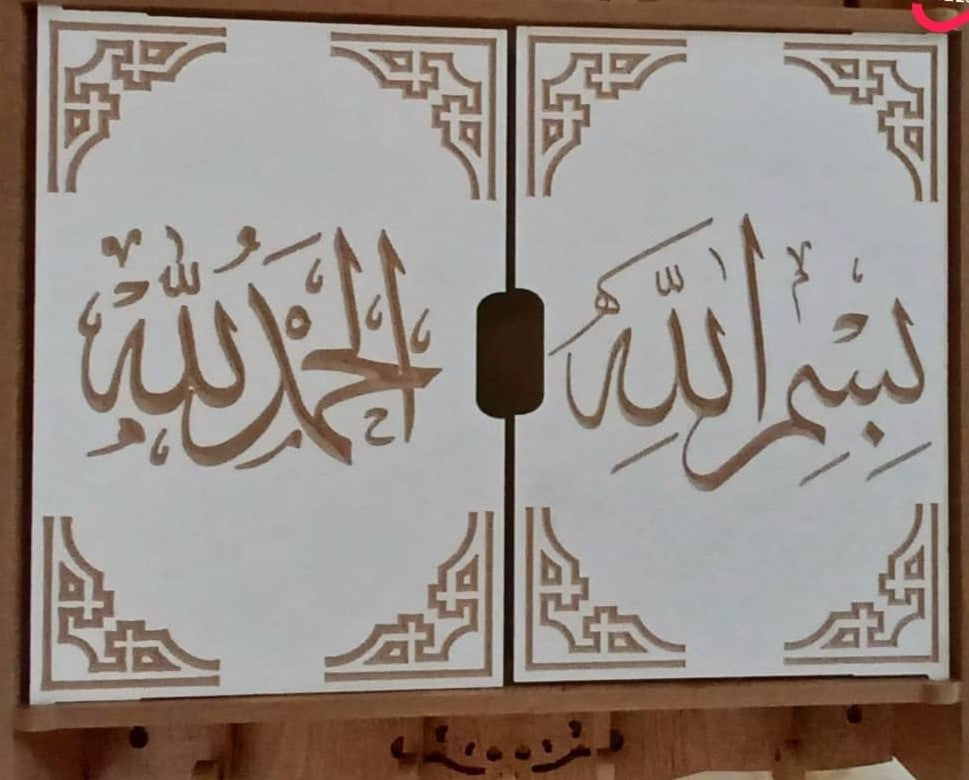 بِسْمِ اللهِ
الْحَمْدُ لِلّٰهِ